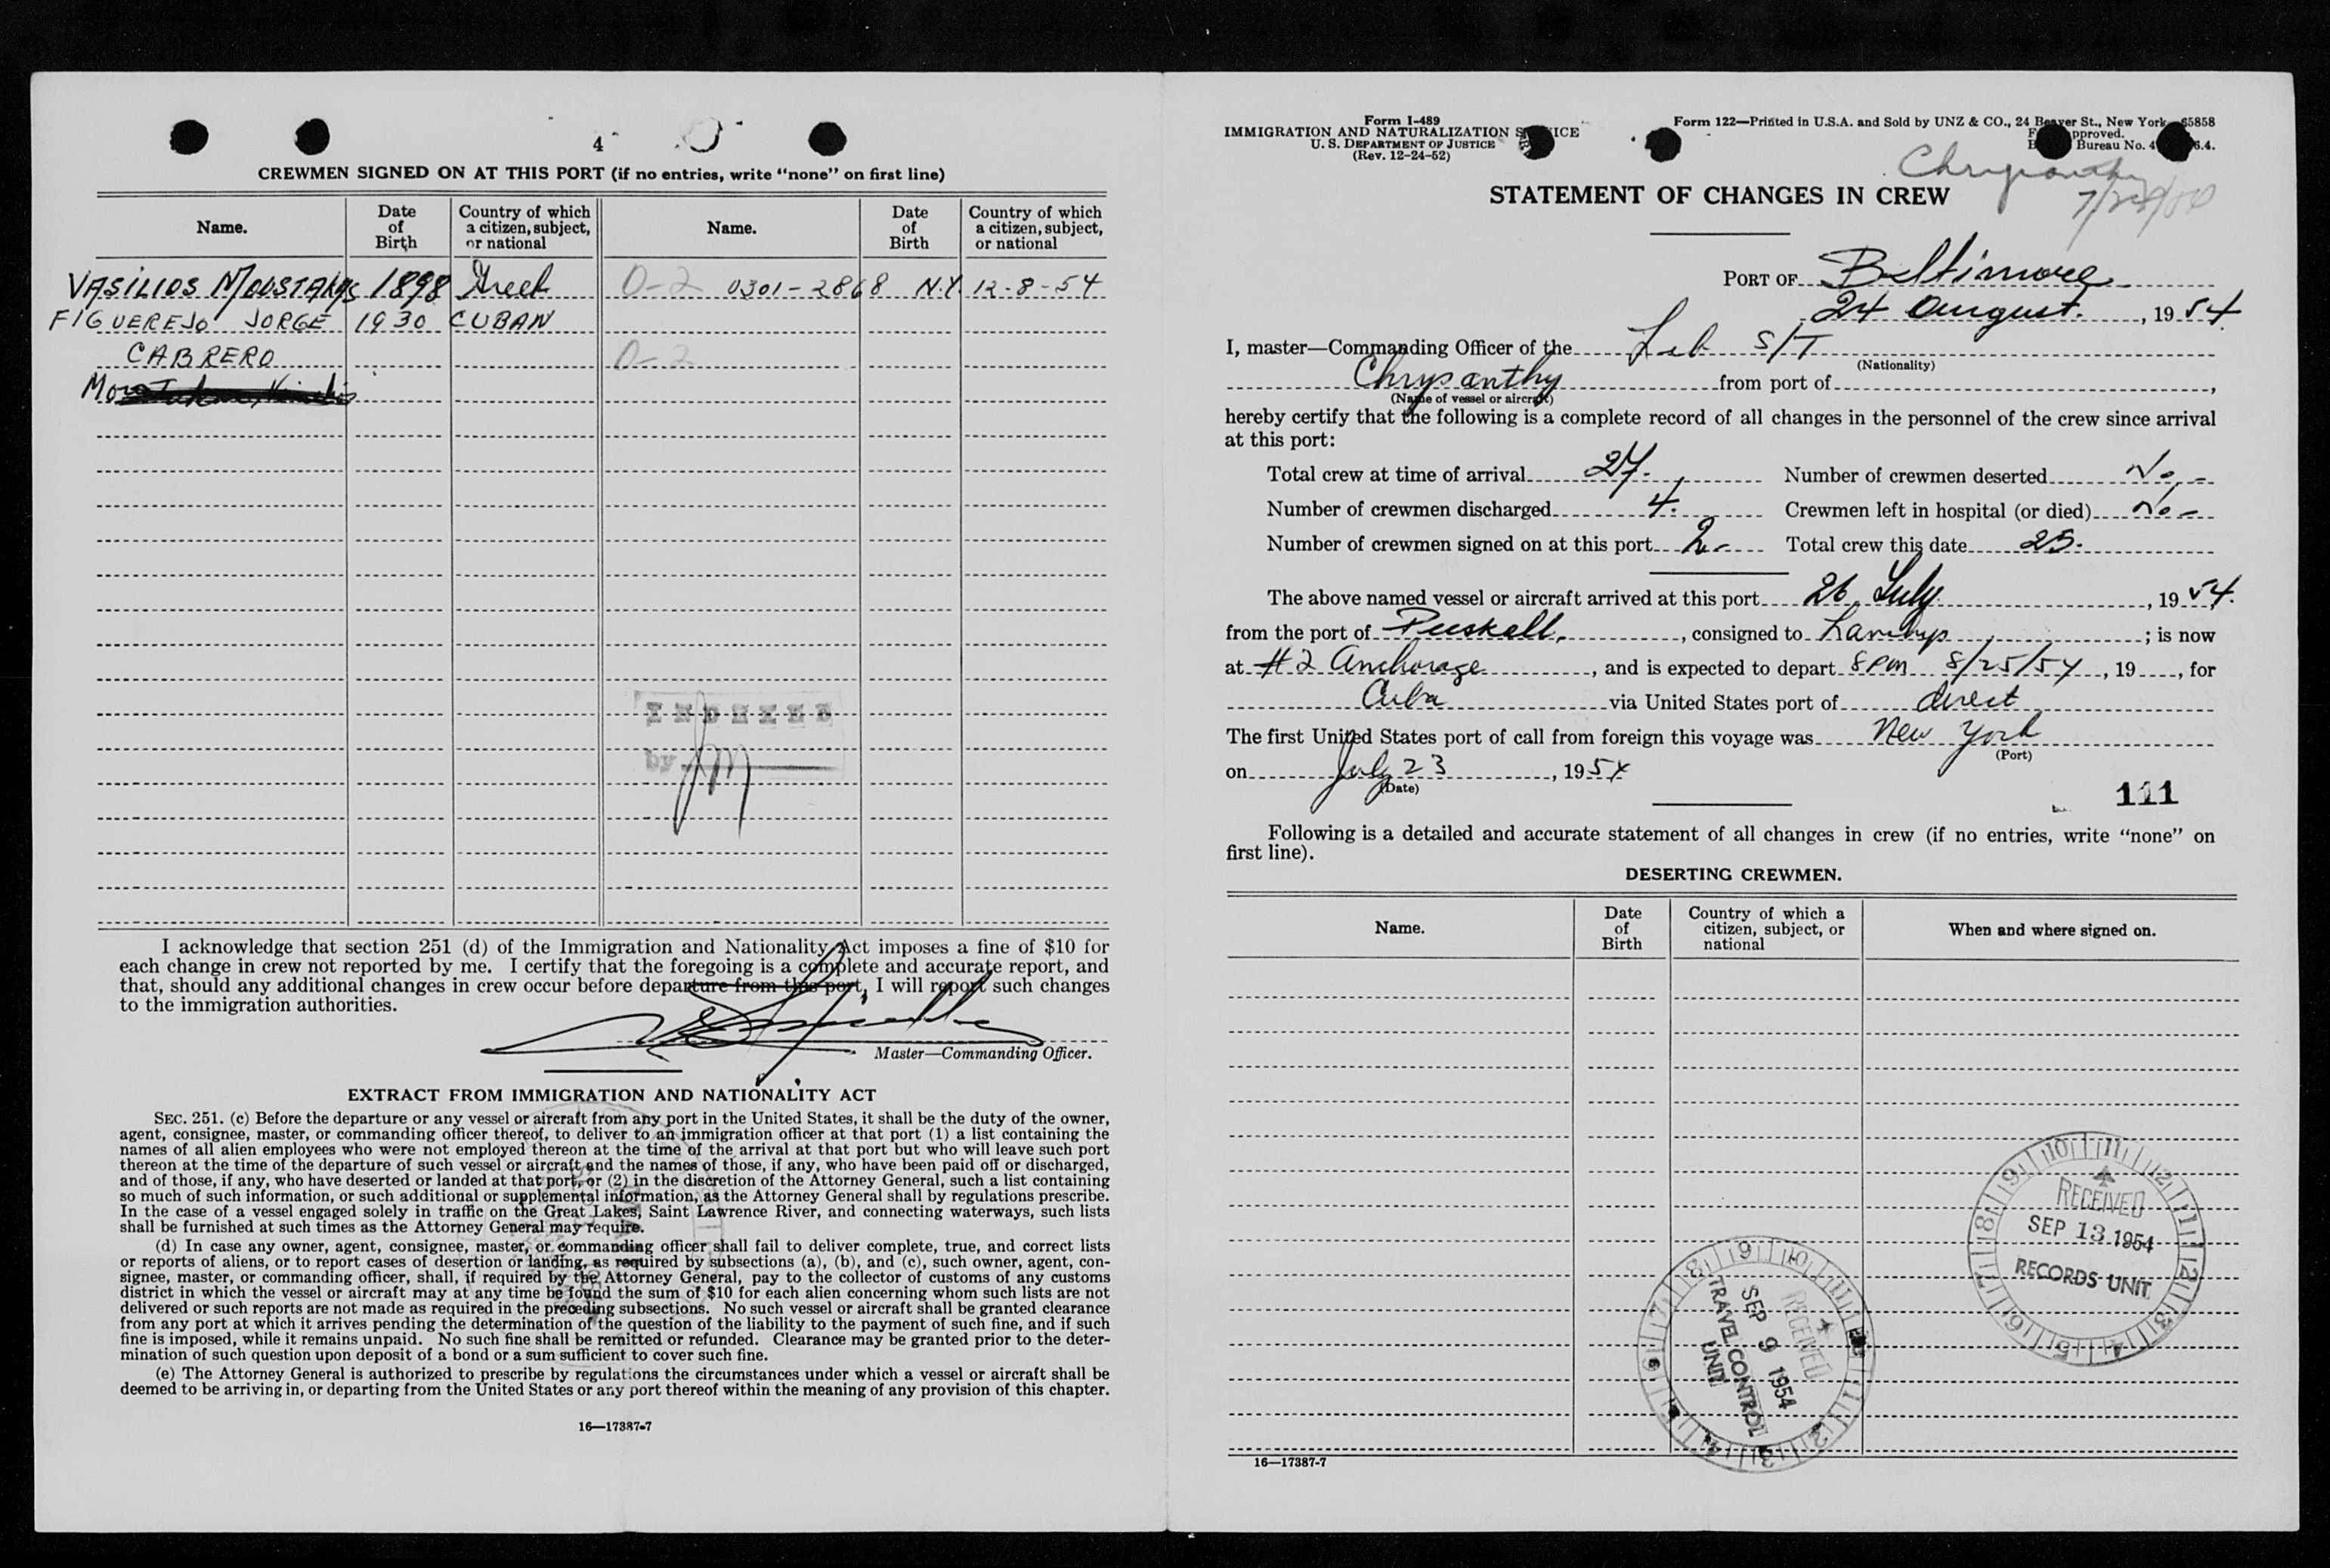 4
CREWMEN SIGNED ON AT THIS PORT (if no entries, write "none" on first line)
Name. Date of Birth Country of which a citizen, subject, or national Name. Date of Birth Country of which a citizen, subject, or national
VASILIOS MOUSTAKAS 1898 Greek 0-2 0301-2868 N.Y. 12-8-54
FIGUEREJO JORGE 1930 CUBAN
CABRERO 0-2
INDEXED
by
I acknowledge that section 251 (d) of the Immigration and Nationality Act imposes a fine of $10 for
each change in crew not reported by me. I certify that the foregoing is a complete and accurate report, and
that, should any additional changes in crew occur before departure from this port, I will report such changes
to the immigration authorities.
Master—Commanding Officer.
EXTRACT FROM IMMIGRATION AND NATIONALITY ACT
SEC. 251. (c) Before the departure or any vessel or aircraft from any port in the United States, it shall be the duty of the owner,
agent, consignee, master, or commanding officer thereof, to deliver to an immigration officer at that port (1) a list containing the
names of all alien employees who were not employed thereon at the time of the arrival at that port but who will leave such port
thereon at the time of the departure of such vessel or aircraft and the names of those, if any, who have been paid off or discharged,
and of those, if any, who have deserted or landed at that port, or (2) in the discretion of the Attorney General, such a list containing
so much of such information, or such additional or supplemental information, as the Attorney General shall by regulations prescribe.
In the case of a vessel engaged solely in traffic on the Great Lakes, Saint Lawrence River, and connecting waterways, such lists
shall be furnished at such times as the Attorney General may require.
(d) In case any owner, agent, consignee, master, or commanding officer shall fail to deliver complete, true, and correct lists
or reports of aliens, or to report cases of desertion or landing, as required by subsections (a), (b), and (c), such owner, agent, con-
signee, master, or commanding officer, shall, if required by the Attorney General, pay to the collector of customs of any customs
district in which the vessel or aircraft may at any time be found the sum of $10 for each alien concerning whom such lists are not
delivered or such reports are not made as required in the preceding subsections. No such vessel or aircraft shall be granted clearance
from any port at which it arrives pending the determination of the question of the liability to the payment of such fine, and if such
fine is imposed, while it remains unpaid. No such fine shall be remitted or refunded. Clearance may be granted prior to the deter-
mination of such question upon deposit of a bond or a sum sufficient to cover such fine.
(e) The Attorney General is authorized to prescribe by regulations the circumstances under which a vessel or aircraft shall be
deemed to be arriving in, or departing from the United States or any port thereof within the meaning of any provision of this chapter.
16—17387-7
Form I-489
IMMIGRATION AND NATURALIZATION SERVICE
U. S. DEPARTMENT OF JUSTICE
(Rev. 12-24-52)
Form 122—Printed in U.S.A. and Sold by UNZ & CO., 24 Beaver St., New York 65858
pproved.
Bureau No. 4
Chrysanthy
STATEMENT OF CHANGES IN CREW
PORT OF Baltimore
24 August, 1954
I, master—Commanding Officer of the Lib S/T
(Nationality)
Chrysanthy from port of ,
(Name of vessel or aircraft)
hereby certify that the following is a complete record of all changes in the personnel of the crew since arrival
at this port:
Total crew at time of arrival 27. Number of crewmen deserted No.-
Number of crewmen discharged 4. Crewmen left in hospital (or died) No-
Number of crewmen signed on at this port 2.- Total crew this date 25.
The above named vessel or aircraft arrived at this port 26 July, 1954.
from the port of , consigned to ; is now
at #2 Anchorage, and is expected to depart 8 PM 8/25/54, 19 , for
Cuba via United States port of direct
The first United States port of call from foreign this voyage was New York
(Port)
on July 23, 1954
(Date)
111
Following is a detailed and accurate statement of all changes in crew (if no entries, write "none" on
first line).
DESERTING CREWMEN.
Name. Date of Birth Country of which a citizen, subject, or national When and where signed on.
RECEIVED
SEP 13 1954
RECORDS UNIT
RECEIVED
SEP 9 1954
TRAVEL CONTROL
UNIT
16—17387-7